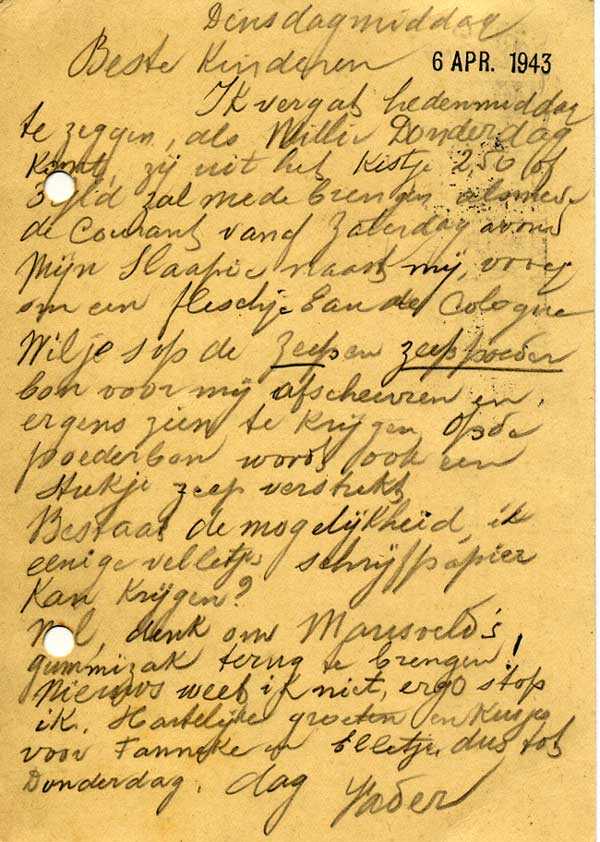 Dinsdagmiddag
Beste Kinderen
6 APR. 1943
Ik vergat hedenmiddag
te zeggen, als Willie Donderdag
komt, zij uit het Kistje 2,50 of
3 gld zal mede brengen alsmede
de Courant vand Zaterdag avond
Mijn Slaapie naast mij, vroeg
om een fleschje Eau de Cologne
Wil je s op de zeep en zeeppoeder
bon voor mij afscheuren en
ergens zien te krijgen Op de
poederbon wordt ook een
stukje zeep verstrekt
Bestaat de mogelijkheid, ik
eenige velletjes schrijfpapier
Kan Krijgen?
denk om Marisveld's
gummizak terug te brengen!
Nieuws weet ik niet, ergo stop
ik. Hartelijke groeten en Kusjes
voor Fanneke en Elletje, dus tot
Donderdag, dag Vader